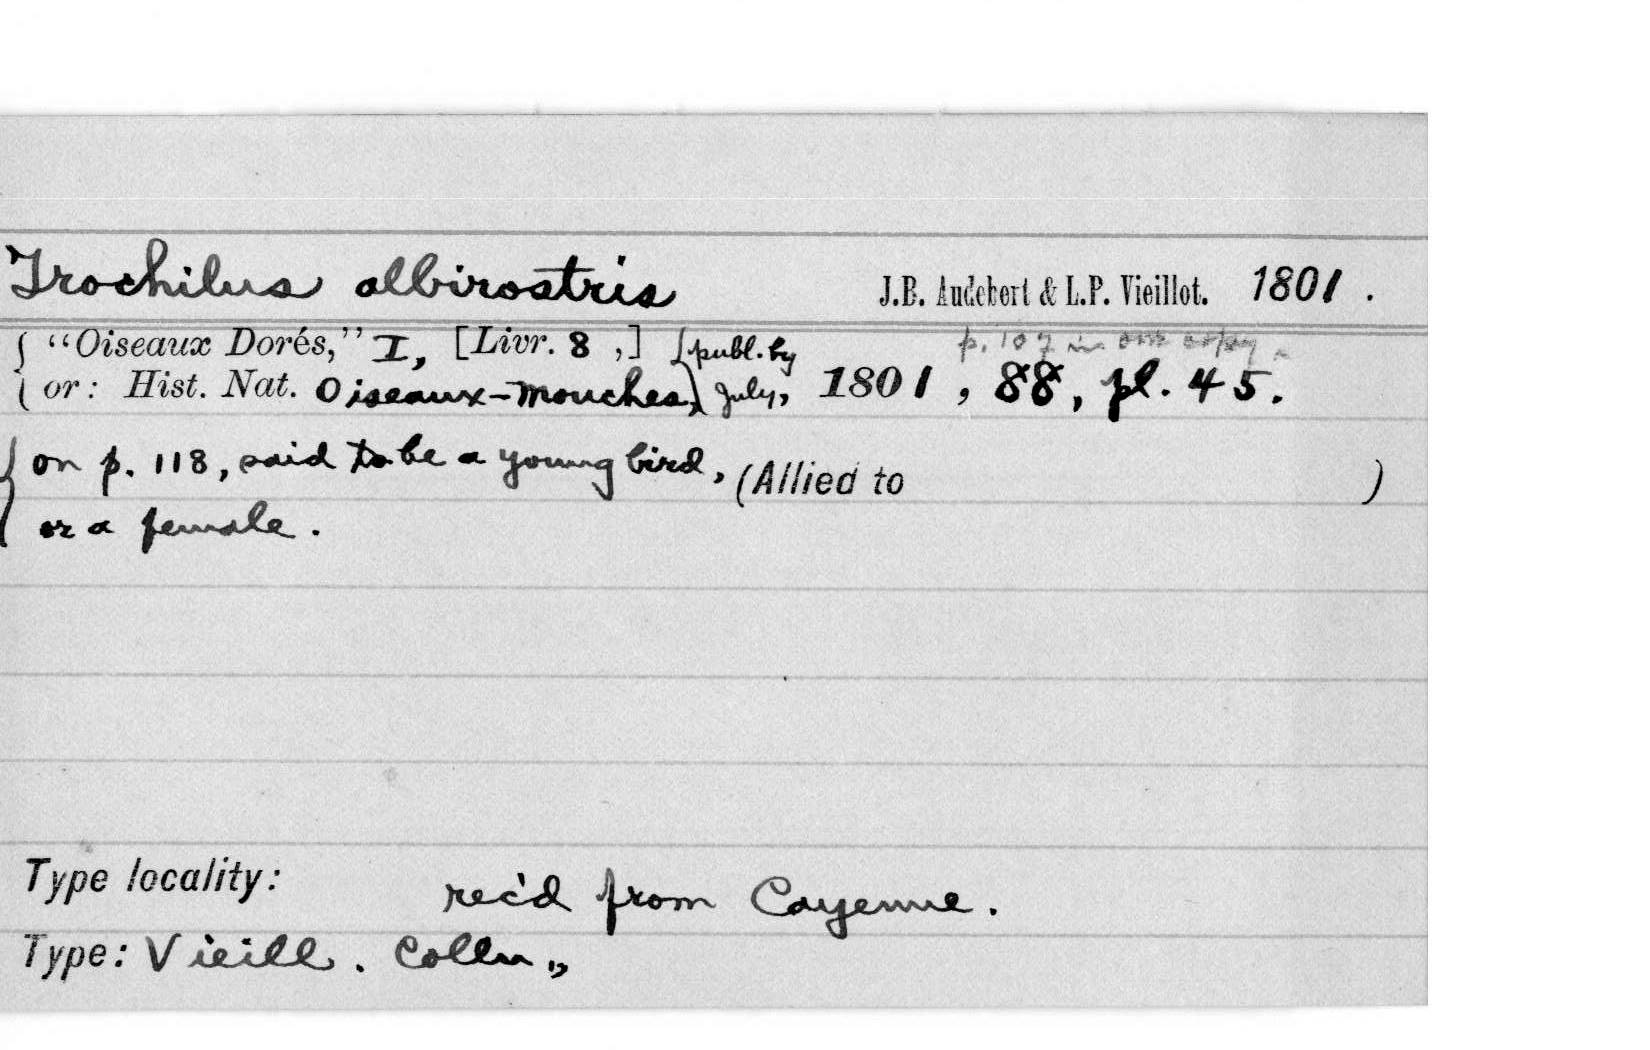 Trochilus albirostris J.B. Audebert & L.P. Vieillot. 1801.
p. 107 in one copy.
{ "Oiseaux Dorés," I, [Livr. 8 ,] { publ. by
{ or: Hist. Nat. Oiseaux-mouches,) July, 1801, 88, pl. 45.
{ on p. 118, said to be a young bird, (Allied to )
or a female.
Type locality: rec'd from Cayenne.
Type: Vieill. Colln.,